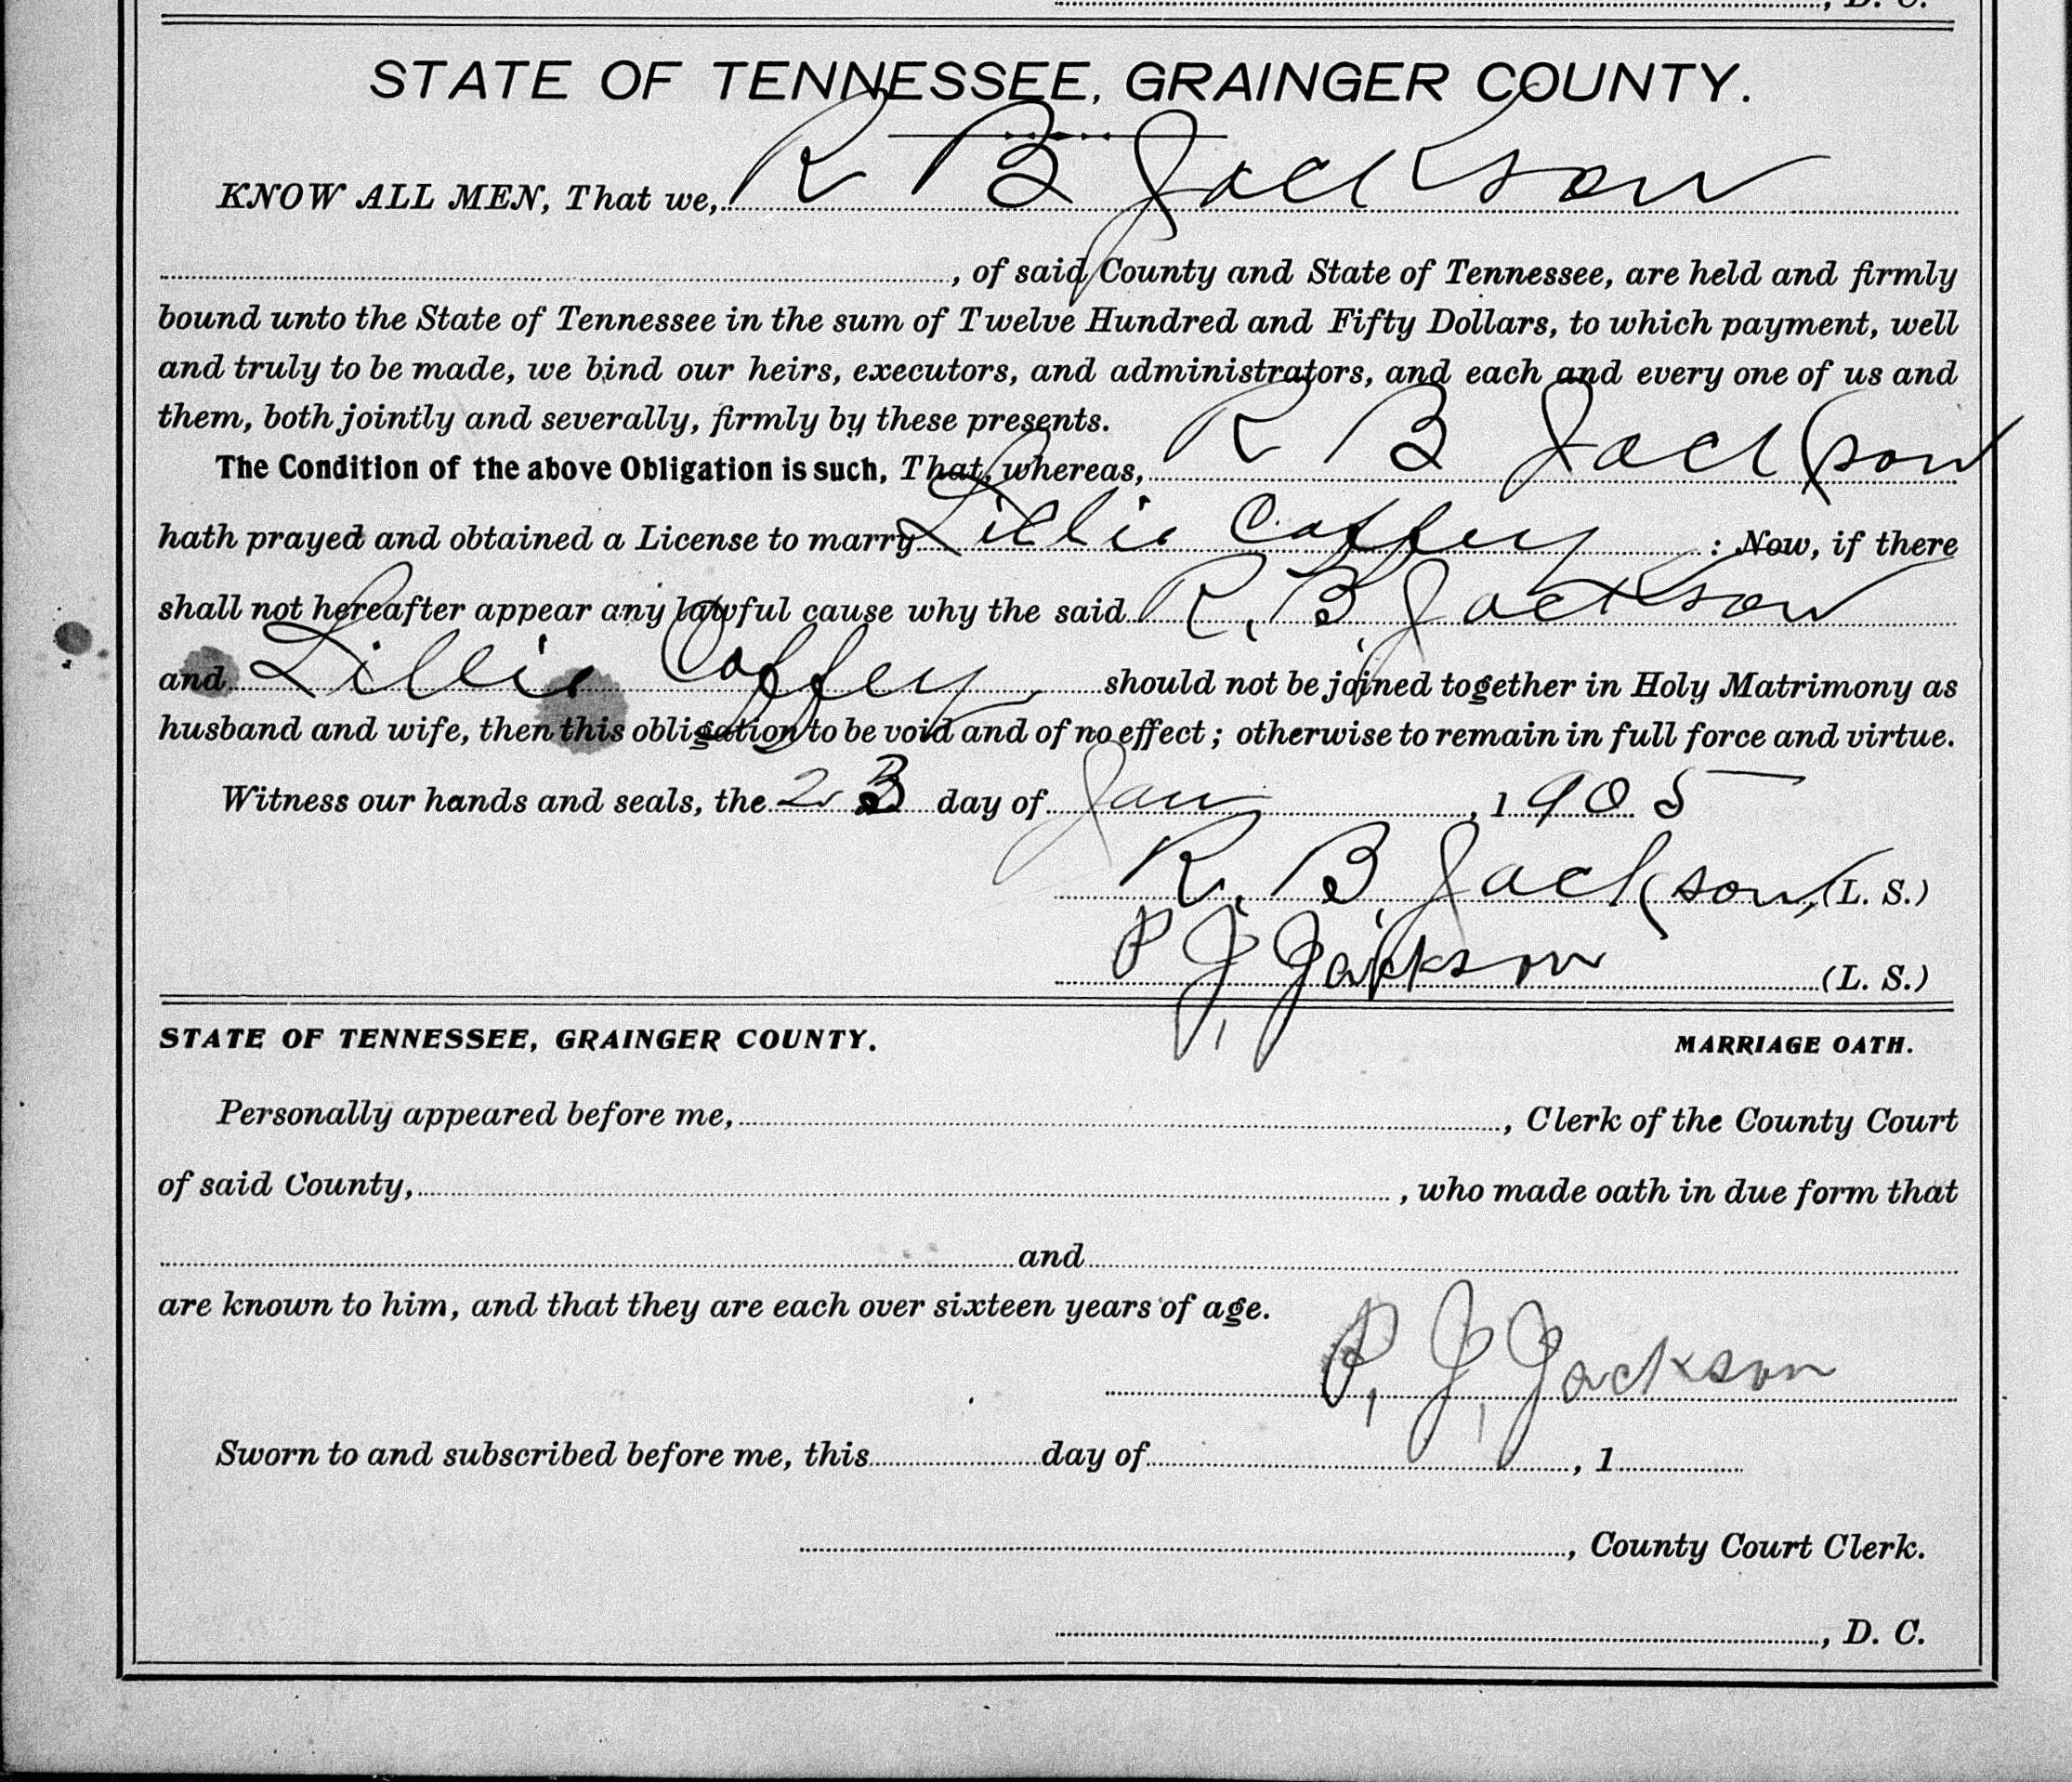 , D. C.
STATE OF TENNESSEE, GRAINGER COUNTY.
KNOW ALL MEN, That we, R B Jackson
, of said County and State of Tennessee, are held and firmly
bound unto the State of Tennessee in the sum of Twelve Hundred and Fifty Dollars, to which payment, well
and truly to be made, we bind our heirs, executors, and administrators, and each and every one of us and
them, both jointly and severally, firmly by these presents.
The Condition of the above Obligation is such, That, whereas, R B Jackson
hath prayed and obtained a License to marry Lillie Coffey : Now, if there
shall not hereafter appear any lawful cause why the said R. B. Jackson
and Lillie Coffey should not be joined together in Holy Matrimony as
husband and wife, then this obligation to be void and of no effect; otherwise to remain in full force and virtue.
Witness our hands and seals, the 23 day of Jan, 1905
R. B. Jackson, (L. S.)
P J, Jackson (L. S.)
STATE OF TENNESSEE, GRAINGER COUNTY. MARRIAGE OATH.
Personally appeared before me, , Clerk of the County Court
of said County, , who made oath in due form that
and
are known to him, and that they are each over sixteen years of age.
P, J, Jackson
Sworn to and subscribed before me, this day of , 1
, County Court Clerk.
, D. C.